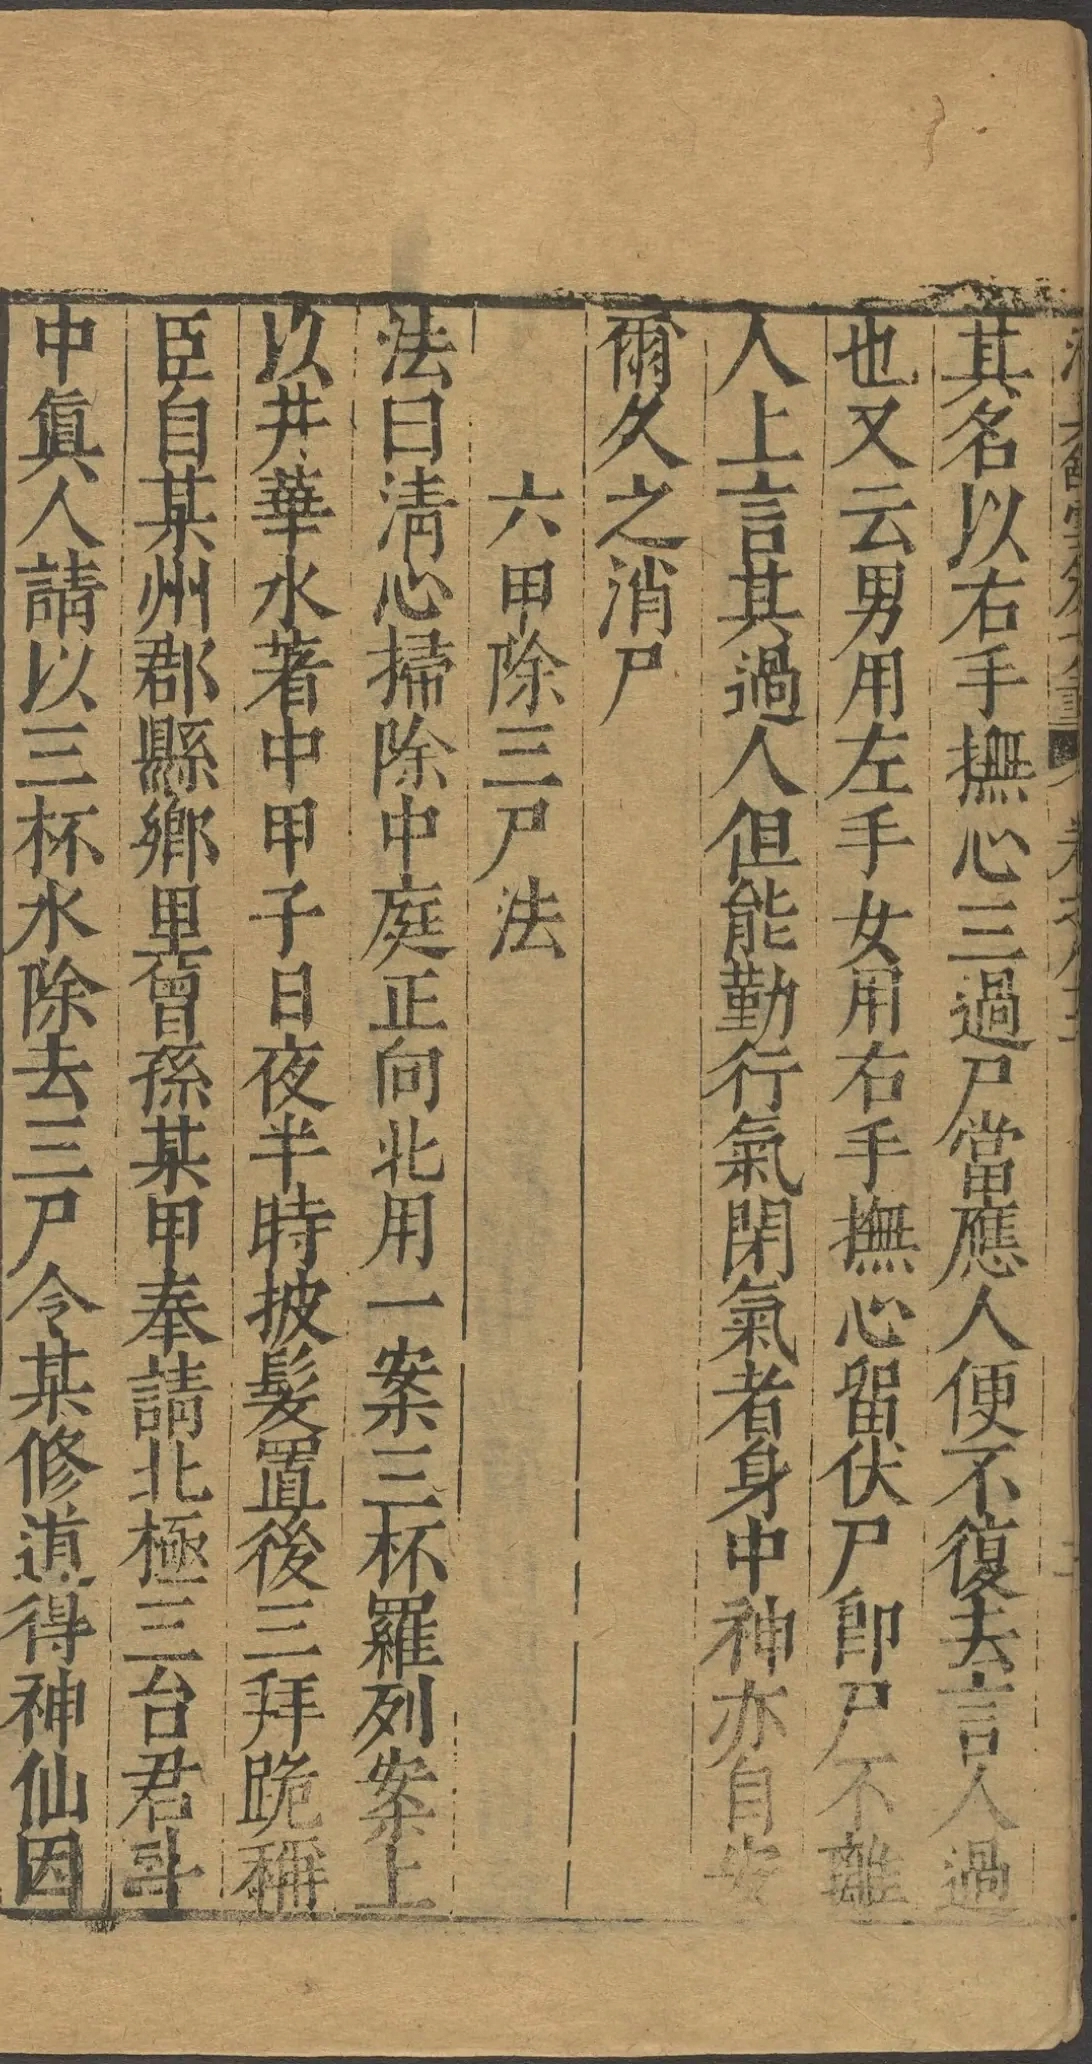 其名以右手撫心三過尸當應人便不復去言人過
也又云男用左手女用右手撫心留伏尸卽尸不離
人上言其過人但能勤行氣閉氣者身中神亦自安
爾久之消尸
六甲除三尸法
法曰清心掃除中庭正向北用一案三杯羅列案上
以井華水著中甲子日夜半時披髮置後三拜跪稱
臣自某州郡縣鄉里曾孫某甲奉請北極三台君斗
中眞人請以三杯水除去三尸令某修道得神仙因